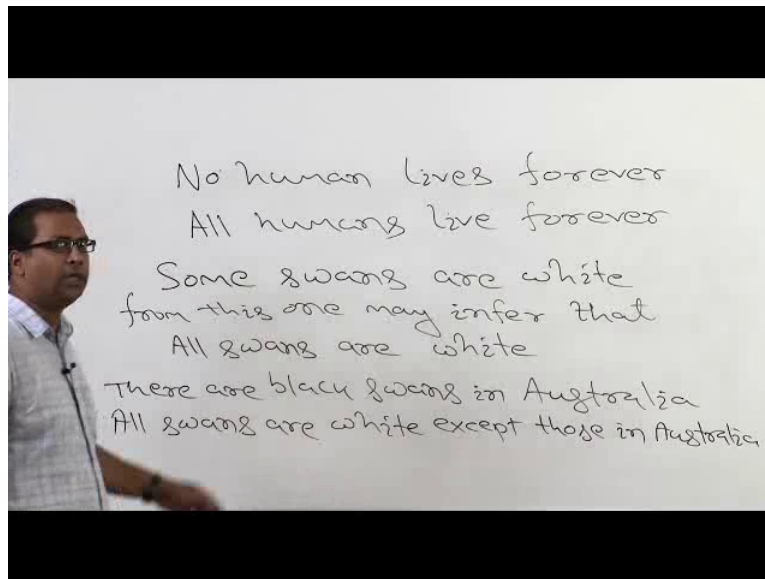 No human lives forever
All humans live forever
Some swans are white
from this one may infer that
All swans are white
There are black swans in Australia
All swans are white except those in Australia